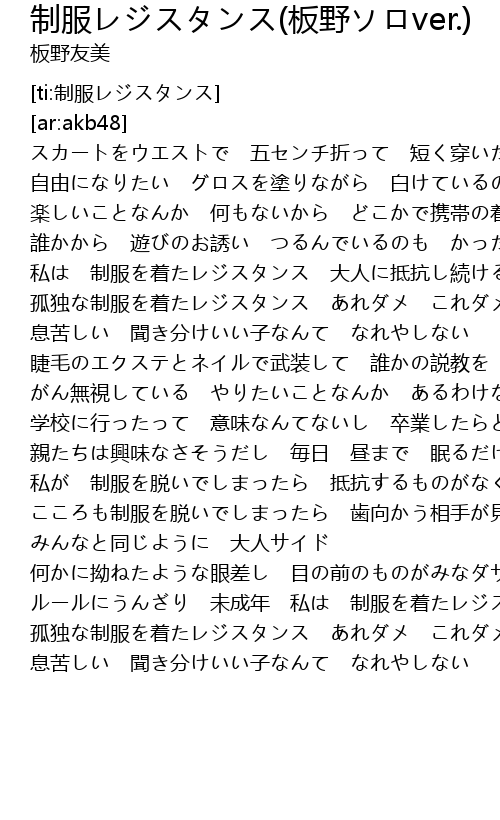 制服レジスタンス(板野ソロver.)
板野友美
[ti:制服レジスタンス]
[ar:akb48]
スカートをウエストで　五センチ折って　短く穿いた
自由になりたい　グロスを塗りながら　白けているの
楽しいことなんか　何もないから　どこかで携帯の着
誰かから　遊びのお誘い　つるんでいるのも　かった
私は　制服を着たレジスタンス　大人に抵抗し続ける
孤独な制服を着たレジスタンス　あれダメ　これダメ
息苦しい　聞き分けいい子なんて　なれやしない
睫毛のエクステとネイルで武装して　誰かの説教を
がん無視している　やりたいことなんか　あるわけな
学校に行ったって　意味なんてないし　卒業したらと
親たちは興味なさそうだし　毎日　昼まで　眠るだけ
私が　制服を脱いでしまったら　抵抗するものがなく
こころも制服を脱いでしまったら　歯向かう相手が見
みんなと同じように　大人サイド
何かに拗ねたような眼差し　目の前のものがみなダサ
ルールにうんざり　未成年　私は　制服を着たレジス
孤独な制服を着たレジスタンス　あれダメ　これダメ
息苦しい　聞き分けいい子なんて　なれやしない